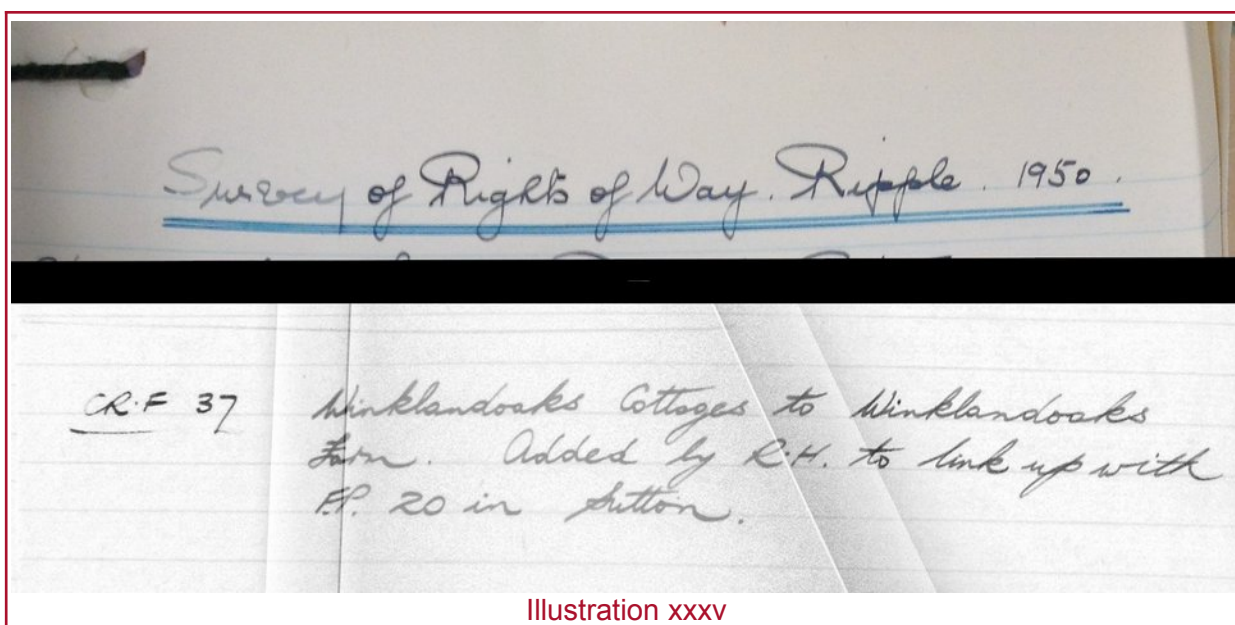 Survey of Rights of Way. Ripple. 1950.
CR.F 37 Winklandoaks Cottages to Winklandoaks
Farm. Added by R.H. to link up with
F.P. 20 in Sutton.
Illustration xxxv